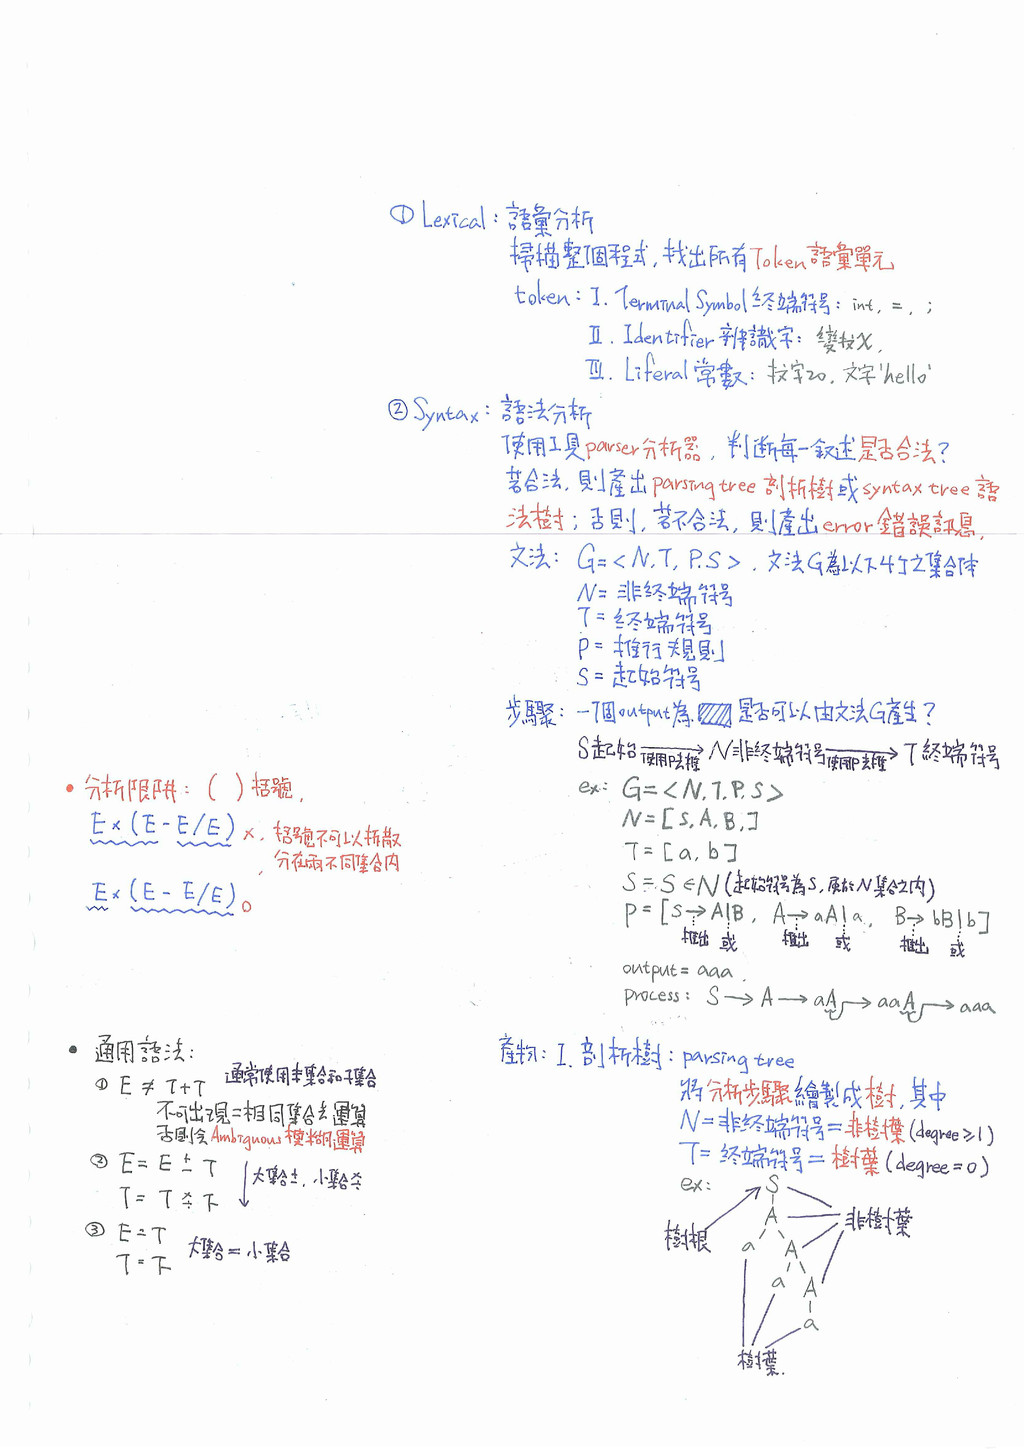 ① Lexical：語彙分析
掃描整個程式，找出所有Token語彙單元
token：I. Terminal Symbol終端符號：int, =, ;
II. Identifier 辨識字：變数X,
III. Literal 常數：数字20, 文字'hello'
② Syntax：語法分析
使用工具parser分析器，判斷每一敘述是否合法？
若合法，則產出parsing tree 剖析樹或syntax tree 語
法樹；否則，若不合法，則產出error 錯誤訊息，
文法：G=<N,T,P,S>，文法G為以下4个之集合体
N= 非終端符號
T= 終端符號
P= 推行規則
S= 起始符號
步驟：一個output為 是否可以由文法G產生？
S起始 → N非終端符號 → T終端符號
使用P去推 使用P去推
ex: G=<N,T,P,S>
N=[S,A,B,]
T=[a,b]
S=S∈N(起始符號為S,屬於N集合之內)
P=[S→A|B, A→aA|a, B→bB|b]
推出 或 推出 或 推出 或
output=aaa.
process: S→A→aA→aaA→aaa
產物：I. 剖析樹：parsing tree
將分析步驟繪製成樹，其中
N=非終端符號=非樹葉(degree≥1)
T=終端符號=樹葉(degree=0)
ex: S
樹根 A 非樹葉
a A
a A
a
樹葉.
• 分析限阱：( )括號，
E×(E-E/E) ×，括號不可以拆散
，分在兩不同集合內
E×(E-E/E)。
• 通用語法：
① E≠T+T 通常使用本集合和子集合
不可出現二相同集合去運算
否則令Ambiguous模糊運算
② E=E±T 大集合±，小集合
T=T
③ E=T 大集合=小集合
T=下